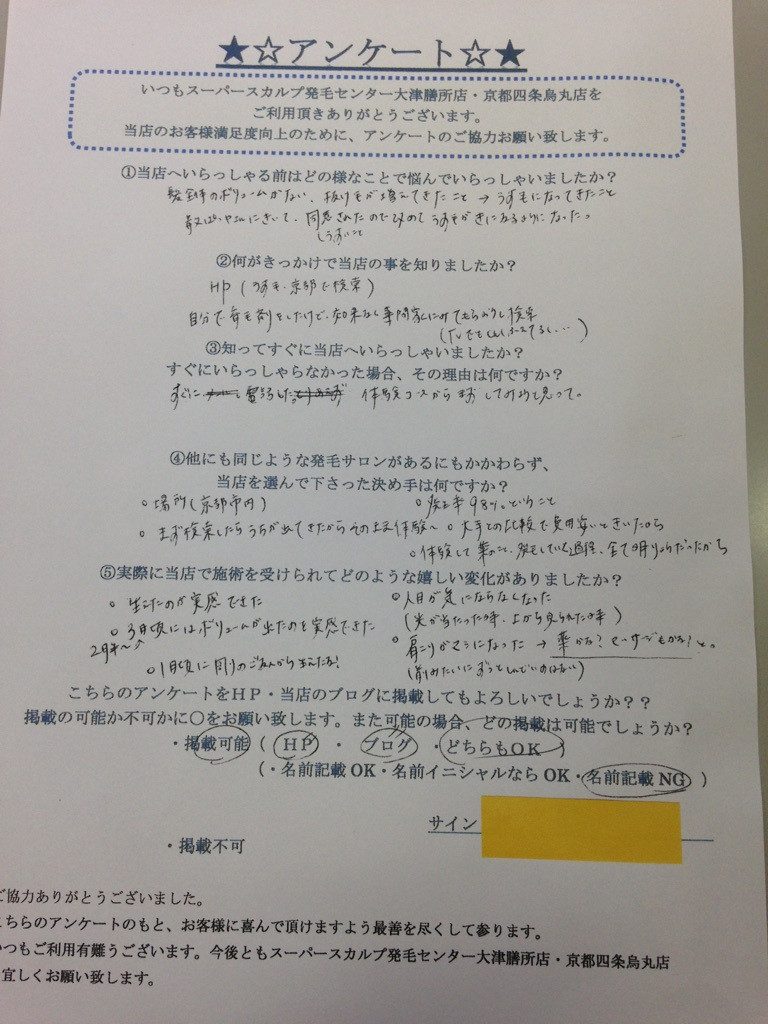 ★☆アンケート☆★
いつもスーパースカルプ発毛センター大津膳所店・京都四条烏丸店を
ご利用頂きありがとうございます。
当店のお客様満足度向上のために、アンケートのご協力お願い致します。
①当店へいらっしゃる前はどの様なことで悩んでいらっしゃいましたか？
髪全体のボリュームがない、抜け毛が増えてきたこと → うす毛になってきたこと
にきいて、同意されたので改めてうす毛がきになるようになった。
(うすいこと
②何がきっかけで当店の事を知りましたか？
HP (うす毛、京都で検索)
自分で育毛剤をしたけど、効果なく専門家にみてもらおうと検索
③知ってすぐに当店へいらっしゃいましたか？
すぐにいらっしゃらなかった場合、その理由は何ですか？
すぐに 電話した 体験コースからまずしてみようと思って。
④他にも同じような発毛サロンがあるにもかかわらず、
当店を選んで下さった決め手は何ですか？
○ 場所(京都市内) ○ 発毛率98%ということ
○ まず検索したらうちが出てきたからそのまま体験へ ○ 大手との比較で費用安いときいたから
○ 体験して 薬のこと、発毛している過程、全て明りょうだったから
⑤実際に当店で施術を受けられてどのような嬉しい変化がありましたか？
○ 生えたのが実感できた ○ 人目が気にならなくなった
○ 3月頃にはボリュームが出たのを実感できた (光が当たった時、上から見られた時)
2月半〜 ○ 肩こりがマシになった →
○ 1月頃に周りのうぶ毛から生えた
こちらのアンケートをＨＰ・当店のブログに掲載してもよろしいでしょうか？？
掲載の可能か不可かに〇をお願い致します。また可能の場合、どの掲載は可能でしょうか？
・掲載可能 ( ＨＰ ・ ブログ ・どちらもＯＫ )
(・名前記載 OK・名前イニシャルなら OK・名前記載 NG )
サイン
・掲載不可
ご協力ありがとうございました。
こちらのアンケートのもと、お客様に喜んで頂けますよう最善を尽くして参ります。
いつもご利用有難うございます。今後ともスーパースカルプ発毛センター大津膳所店・京都四条烏丸店
宜しくお願い致します。